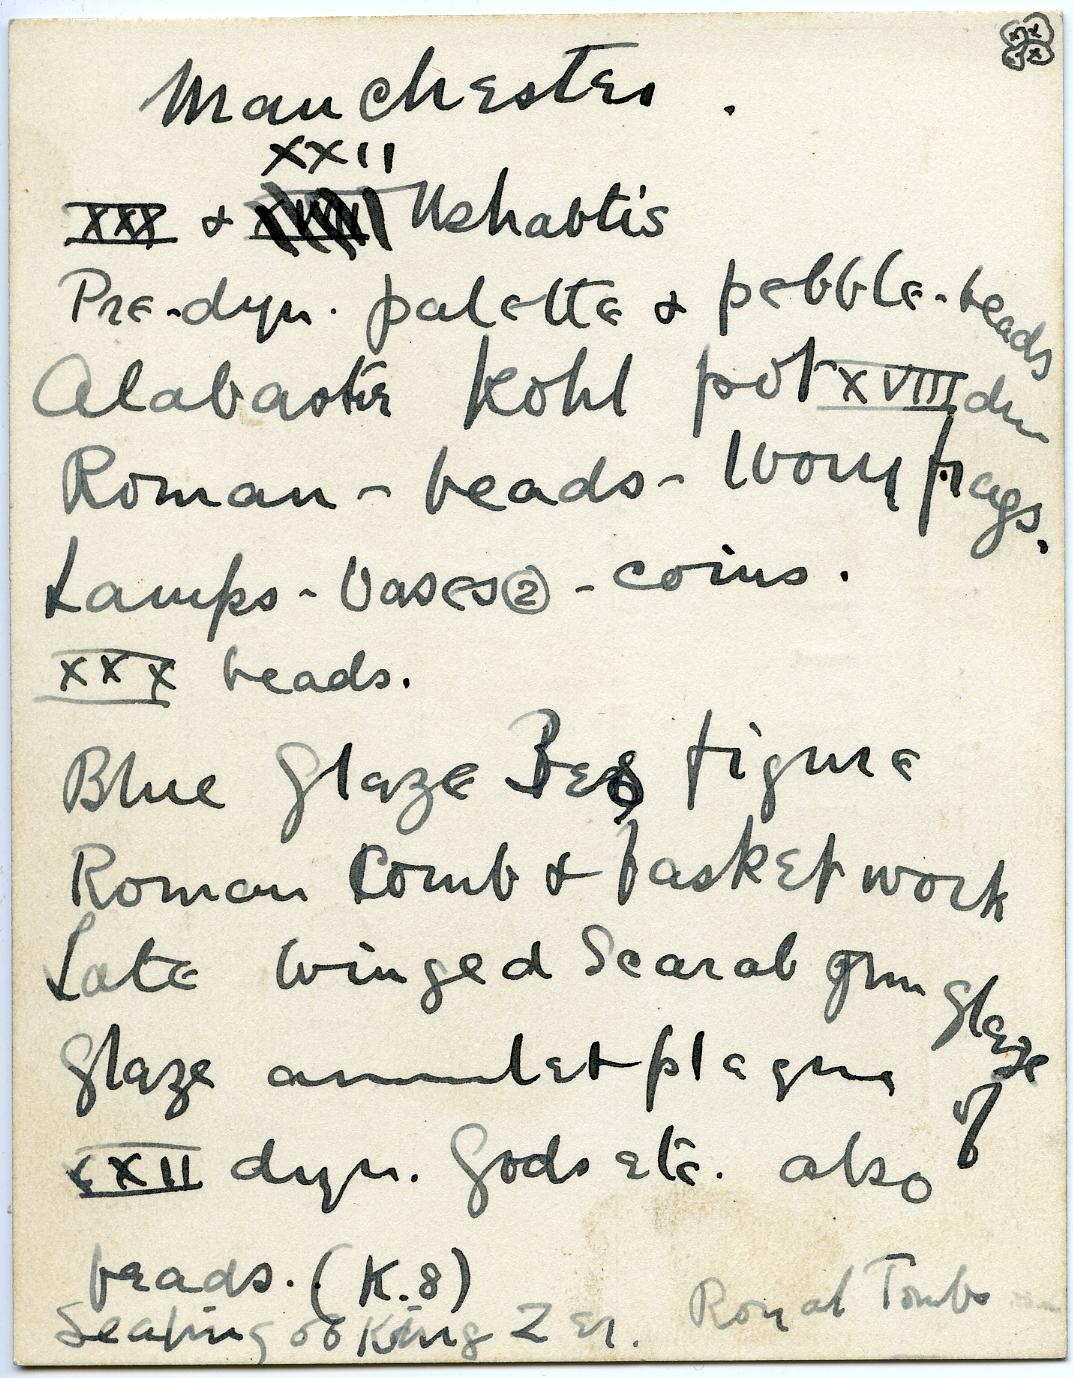 Manchester.
XXII
XXX & Ushabtis
Pre-dyn. palette & pebble-beads
Alabaster Kohl pot XVIII dyn
Roman - beads - Ivory frags.
Lamps - Vases ② - coins.
XXX beads.
Blue Glaze Bes figure
Roman Comb & basket work
Late Winged Scarab grn glaze
Glaze amulet plaque of
XXII dyn. Gods etc. also
beads. (K.8)
Sealing of King Zer. Royal Tombs